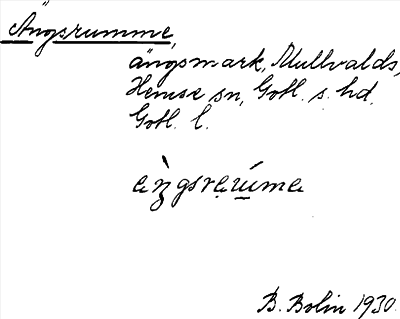 Ängsrumme,
ängsmark, Mullvalds,
Hemse sn, Gotl. s. hd.
Gotl. l.
B. Bolin 1930.